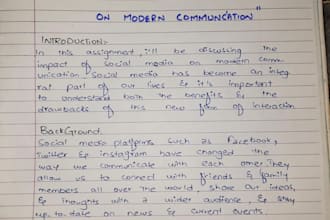 ON MODERN COMMUNCATION"
INTRODUCTION:-
In this assignment, i'll be discussing the
impact of social media on modern comm
unication. Social media has become an integ
ral part of our lives & it's important
to understand both the benefits & the
drawbacks of this new form of interaction
BackGround.
Social media platforms such as Facebook,
Twitter & instagram have changed the
way we communicate with each other. They
allow us to connect with friends & family
members all over the world, share our ideas,
& thoughts with a wider audience, & stay
up-to-date on news & current events.